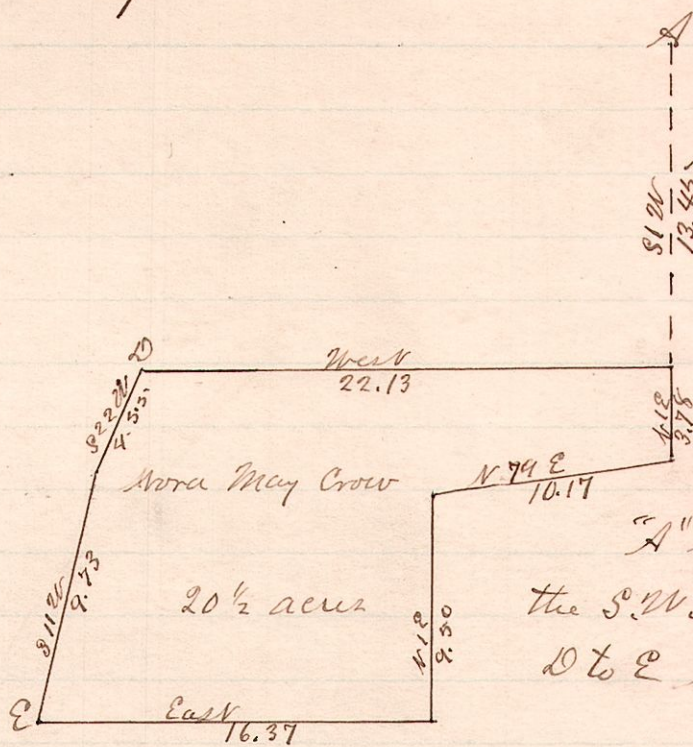 A
S 1 W
13.45
D
West
22.13
S 22 W
4.55
N 1 E
3.78
Nora May Crow
N 79 E
10.17
"A"
S 11 W
9.73
20 ½ acres
the S.W.
N 1 E
9.50
D to E
E
East
16.37